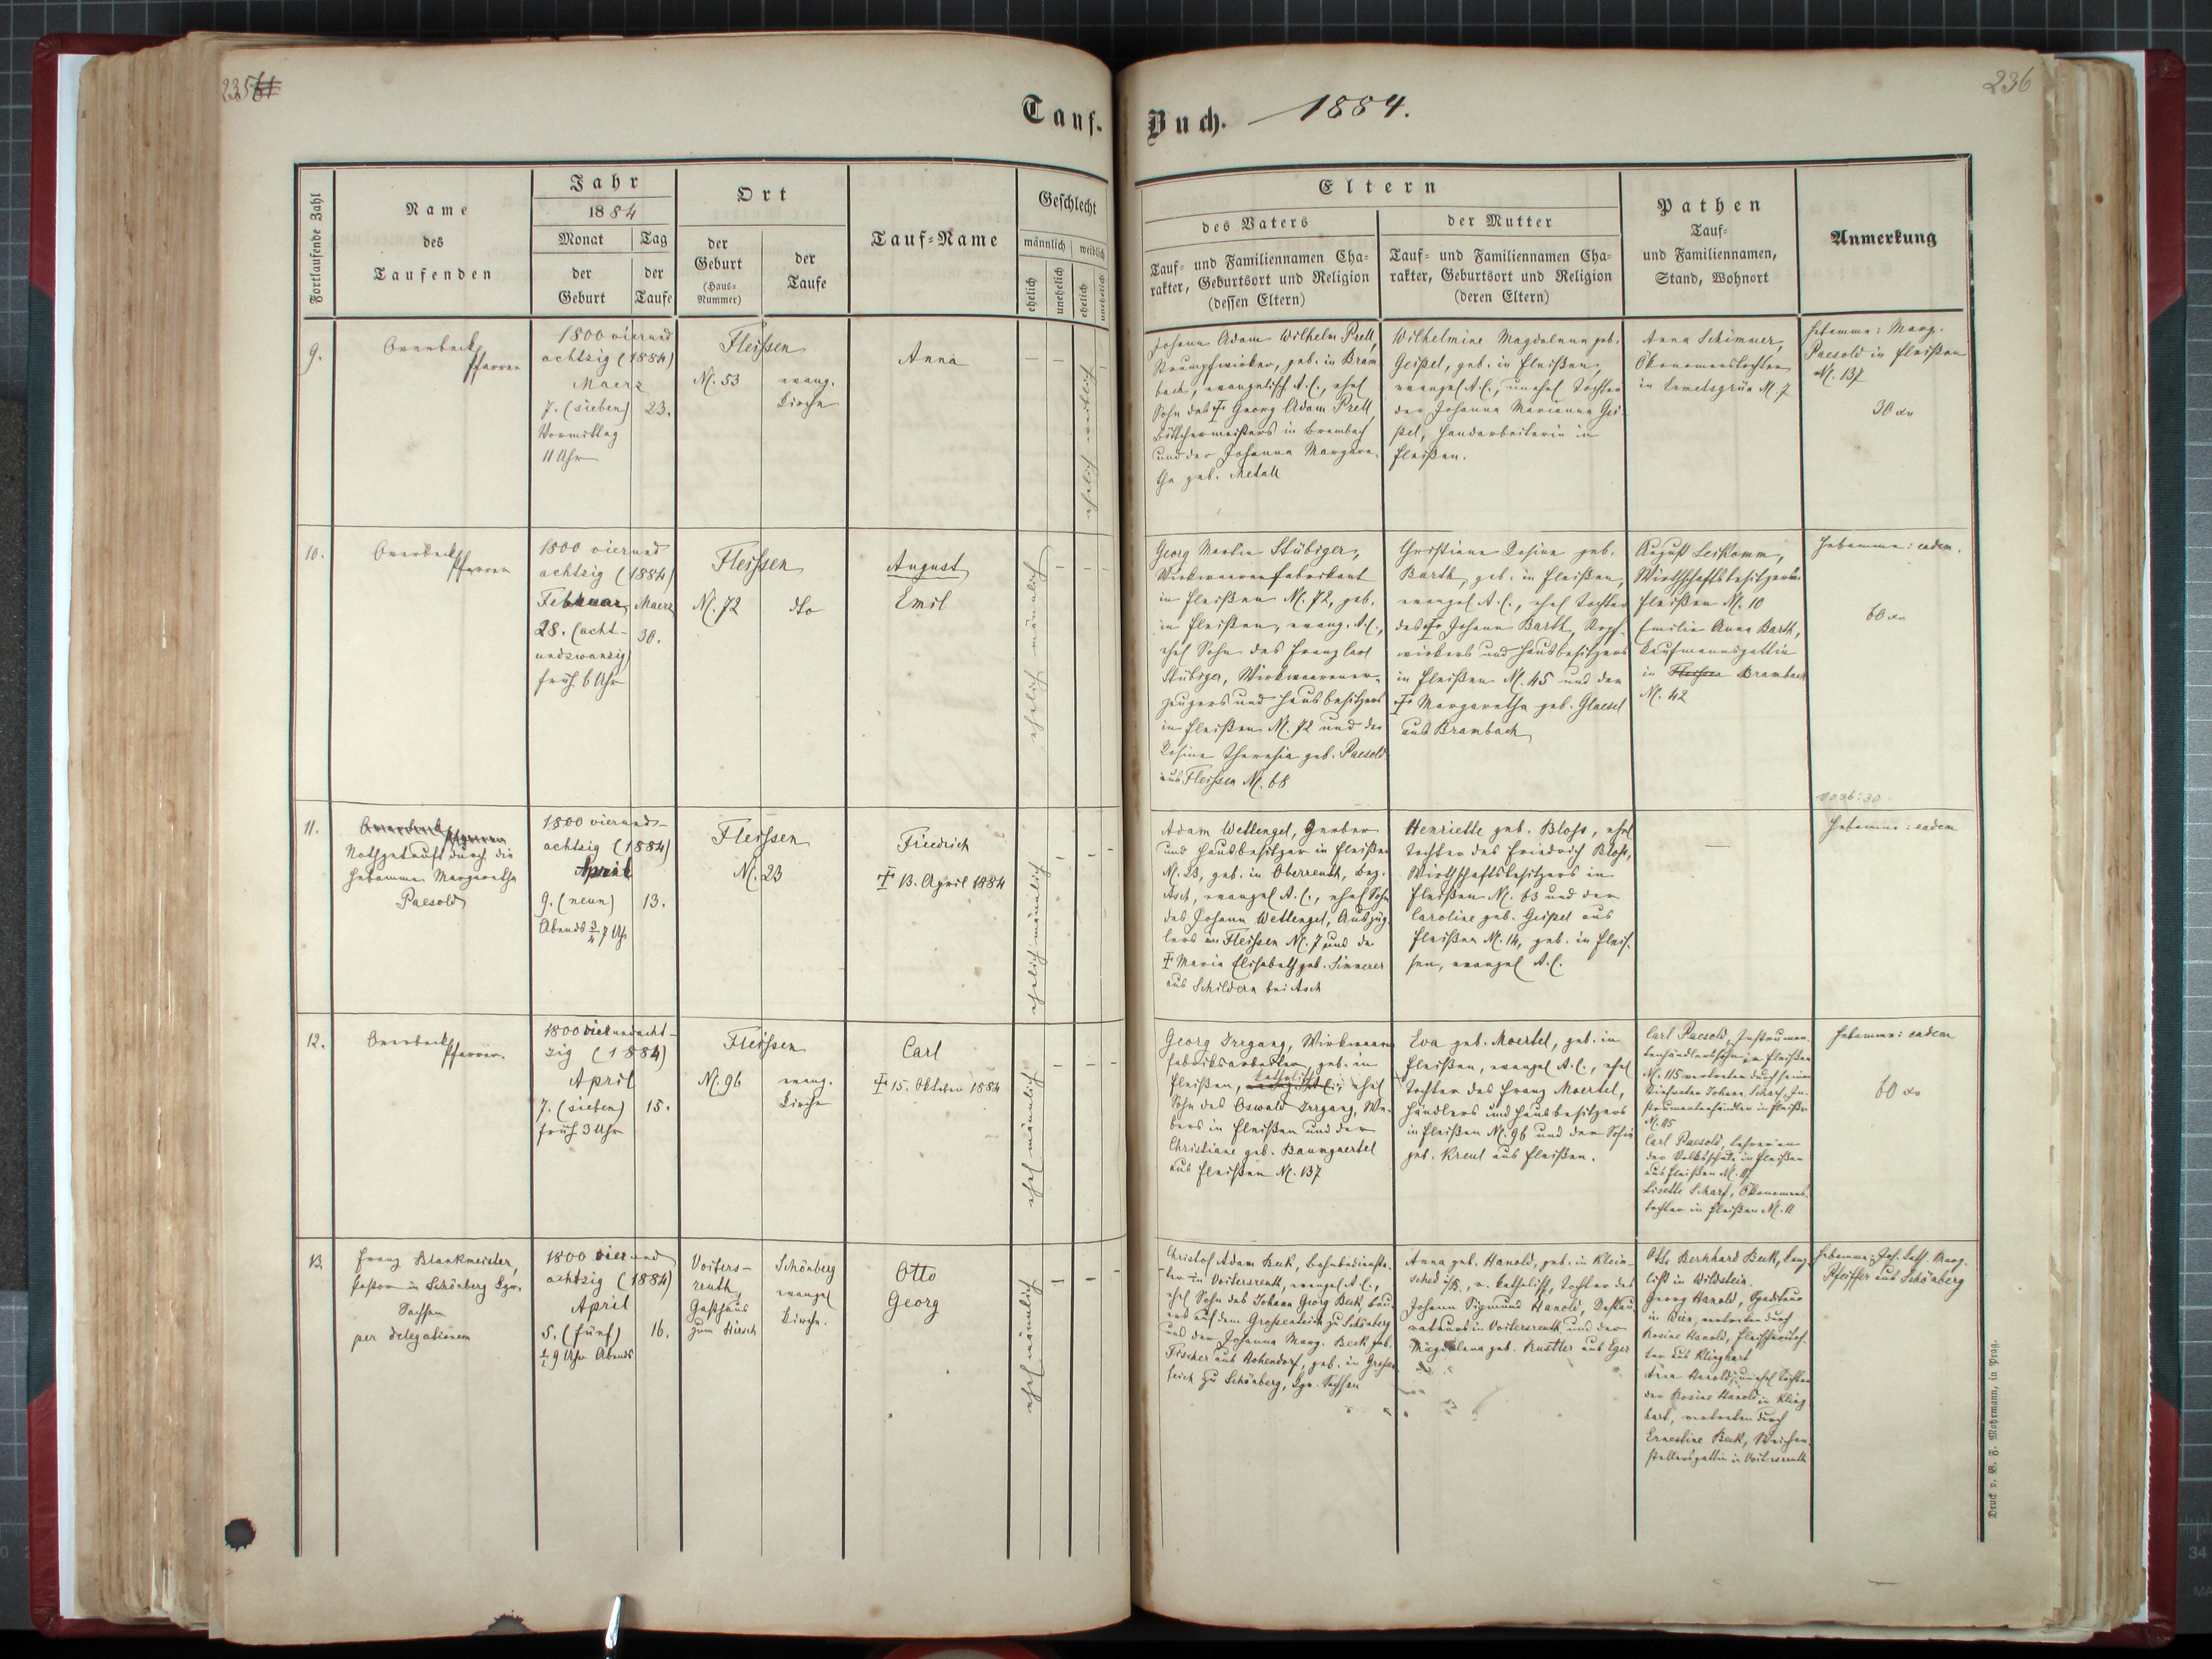 235
236
Tauf-
Buch.
1884.
Fortlaufende Zahl
Name
des
Taufenden
Jahr
1884
Monat
der
Geburt
Tag
der
Taufe
Ort
der
Geburt
(Haus-
Nummer)
der
Taufe
Tauf-Name
Geschlecht
männlich
weiblich
ehelich
unehelich
ehelich
unehelich
Eltern
des Vaters
Tauf- und Familiennamen Cha-
rakter, Geburtsort und Religion
(dessen Eltern)
der Mutter
Tauf- und Familiennamen Cha-
rakter, Geburtsort und Religion
(deren Eltern)
Pathen
Tauf-
und Familiennamen,
Stand, Wohnort
Anmerkung
9.
Overbeck
Pfarrer
1800 vierund
achtzig (1884)
Maerz
7. (sieben)
Vormittag
11 Uhr
23.
Fleißen
N. 53
evang.
Kirche
Anna
ehelich weiblich
Johann Adam Wilhelm Prell,
Strumpfwirker, geb. in Bram
bach, evangelisch A.C., ehel
Sohn des † Georg Adam Prell,
Böttchermeisters in Brambach
und der Johanna Margare-
tha geb. Metall
Wilhelmine Magdalena geb.
Geißel, geb. in Fleißen,
evangel A.C., unehel Tochter
der Johanna Marianna Gei-
ßel, Handarbeiterin in
Fleißen.
Anna Schimmer,
Ökonomenstochter
in Ermetsgrün N. 7
Hebamme: Marg.
Paesold in Fleißen
N. 137
30 xr
10.
Overbeck
Pfarrer
1800 vierund
achtzig (1884)
Februar
28. (acht-
undzwanzig)
früh 6 Uhr
Maerz
30.
Fleißen
N. 72
dto
August
Emil
ehelich männlich
Georg Martin Stübiger,
Wirkwaarenfabrikant
in Fleißen N. 72, geb.
in Fleißen, evang. A.C.,
ehel Sohn des Franz Carl
Stübiger, Wirkwaarener-
zeugers und Hausbesitzers
in Fleißen N. 72 und der
Rosine Theresia geb. Paesold
aus Fleißen N. 68
Christiana Rosina geb.
Barth, geb. in Fleißen,
evangel A.C., ehel Tochter
des † Johann Barth,
wirkers und Hausbesitzers
in Fleißen N. 45 und der
† Margaretha geb. Glaesel
aus Brambach
August Leikomm,
Wirthschaftsbesitzer in
Fleißen N. 10
Emilie Anna Barth,
Kaufmannsgattin
in Fleißen Brambach
N. 42
Hebamme: eadem.
60 xr
11.
Overbeck Pfarrer
Nothgetauft durch die
Hebamme Margaretha
Paesold
1800 vierund-
achtzig (1884)
April
9. (neun)
Abends ¾ 7 Uhr
13.
Fleißen
N. 23
Friedrich
† 13. April 1884
ehelich männlich
Adam Wettengel, Gerber
und Hausbesitzer in Fleißen
N. 23, geb. in Oberreuth, Bez.
Asch, evangel A.C., ehel Sohn
des Johann Wettengel, Auszüg-
lers in Fleißen N. 7 und der
† Maria Elisabeth geb. Simmerer
aus Schildern bei Asch
Henriette geb. Bloß, ehel
Tochter des Friedrich Bloß,
Wirthschaftsbesitzers in
Fleißen N. 63 und der
Caroline geb. Geißel aus
Fleißen N. 14, geb. in Fleis-
sen, evangel A.C.
—
Hebamme: eadem
12.
Overbeck
Pfarrer.
1800 vierundacht-
zig (1884)
April
7. (sieben)
früh 3 Uhr
15.
Fleißen
N. 96
evang.
Kirche
Carl
† 15. Oktober 1884
ehel männlich
Georg Irrgang, Wirkwaaren
fabriksarbeiter, geb. in
Fleißen, katholisch, ehel
Sohn des Oswald Irrgang, We-
bers in Fleißen und der
Christiane geb. Baumgaertel
aus Fleißen N. 137
Eva geb. Moertel, geb. in
Fleißen, evangel A.C., ehel
Tochter des Franz Moertel,
Händlers und Hausbesitzers
in Fleißen N. 96 und der Sofie
geb. Kreul aus Fleißen.
Carl Paesold, Instrumen-
tenhändlerssohn in Fleißen
N. 115 vertreten durch seinen
Stiefvater Johann Scharf, In-
strumentenhändler in Fleißen
Carl Paesold, Lehrer an
der Volksschule in Fleißen
aus Fleißen
Lisette Scharf, Ökonomens-
tochter in Fleißen N. 11
Hebamme: eadem
60 xr
13.
Franz Blankmeister,
Pastor in Schönberg Kgr.
Sachsen
per delegationem
1800 vierund
achtzig (1884)
April
5. (fünf)
½ 9 Uhr Abends
16.
Voiters-
reuth
Gasthaus
zum Hirsch
Schönberg
evangel
Kirche.
Otto
Georg
ehel männlich
Christof Adam Beck, Bahnbedienste-
ter in Voitersreuth, evangel A.C.,
ehel Sohn des Johann Georg Beck, Bau-
ers auf dem Großenteich zu Schönberg
und der Johanna Marg. Beck geb.
Fischer aus Rohendorf, geb. in Großen-
teich zu Schönberg, Kgr. Sachsen
Anna geb. Hanold, geb. in Klein-
katholisch, Tochter des
Johann Sigmund Hanold, Restau-
rateurs in Voitersreuth und der
Magdalena geb. Kuettler aus Eger
Otto Bernhard Beck, Kanz-
list in Wildstein.
Georg Hanold, Spediteur
in Wien, vertreten durch
Rosine Hanold, Fleischerstoch-
ter aus Klinghart
Anna Hanold, unehel Tochter
der Rosine Hanold in Kling
hart, vertreten durch
Ernestine Beck, Weichen-
stellersgattin in Voitersreuth
Hebamme: Joh. Kath. Marg.
Pfeiffer aus Schönberg
Druck v. B. F. Mohrmann, in Prag.